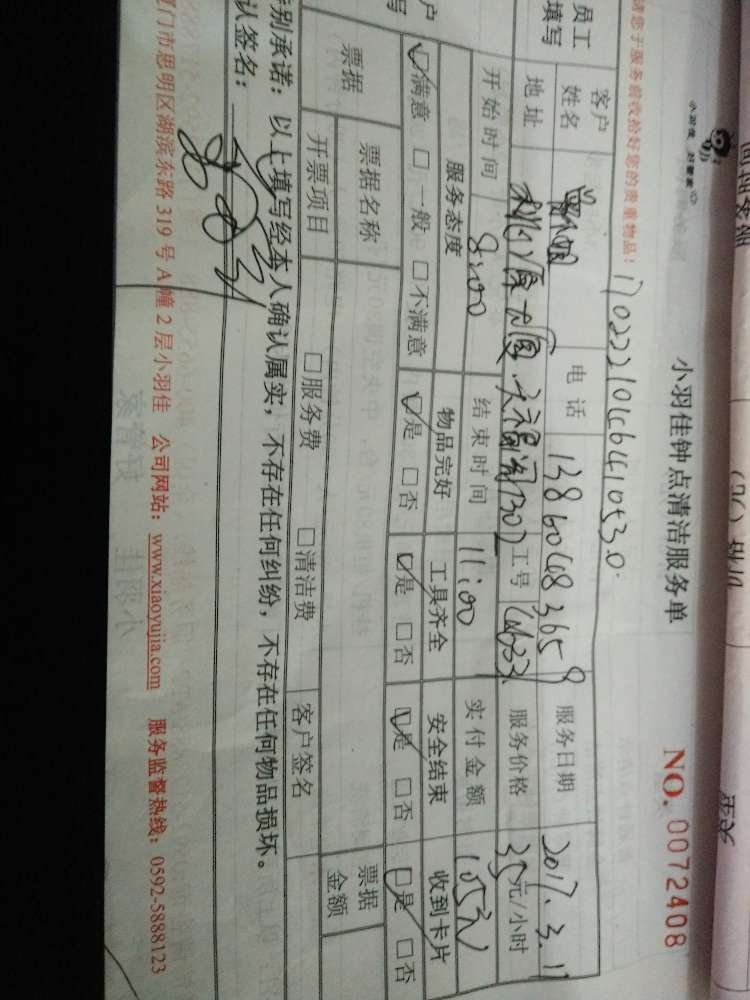 小羽佳钟点清洁服务单
NO. 0072408
请您于服务前收拾好您的贵重物品:
员工填写 客户姓名 电话 13860483659 服务日期 2017.3.11
地址 工号 服务价格 35元/小时
开始时间 8:00 结束时间 11:00 实付金额 105元
服务态度 物品完好 工具齐全 安全结束 收到卡片
☑满意 □一般 □不满意 ☑是 □否 ☑是 □否 ☑是 □否 ☑是 □否
票据 票据名称 □服务费 □清洁费 客户签名 票据金额
开票项目
别承诺:以上填写经本人确认属实,不存在任何纠纷,不存在任何物品损坏。
认签名:
门市思明区湖滨东路 319 号 A 幢 2 层小羽佳 公司网站:www.xiaoyujia.com 服务监督热线:0592-5888123